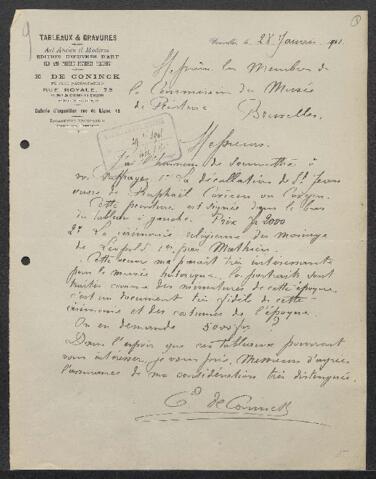 TABLEAUX & GRAVURES
Art Ancien & Moderne
E. DE CONINCK
RUE ROYALE, 73
BRUXELLES
Bruxelles, le 28 Janvier 1901
Messieurs les Membres de
la Commission du Musée
de Peinture
Bruxelles.
Messieurs.
J'ai l'honneur de soumettre à
vos suffrages 1° La décollation de St Jean
de Raphaël Coxcien ou
Cette peinture est signée dans le bas
du tableau à gauche. Prix fr 2000
2° La cérémonie religieuse du mariage
de Léopold 1er, par Mathieu.
Cette œuvre me paraît très intéressante
pour le musée historique, les portraits sont
traités comme des miniatures de cette époque
c'est un document très fidèle de cette
cérémonie et des costumes de l'époque.
On en demande 5000 frs
Dans l'espoir que ces tableaux pourront
vous intéresser, je vous prie, Messieurs d'agréer
l'assurance de ma considération très distinguée.
de Coninck